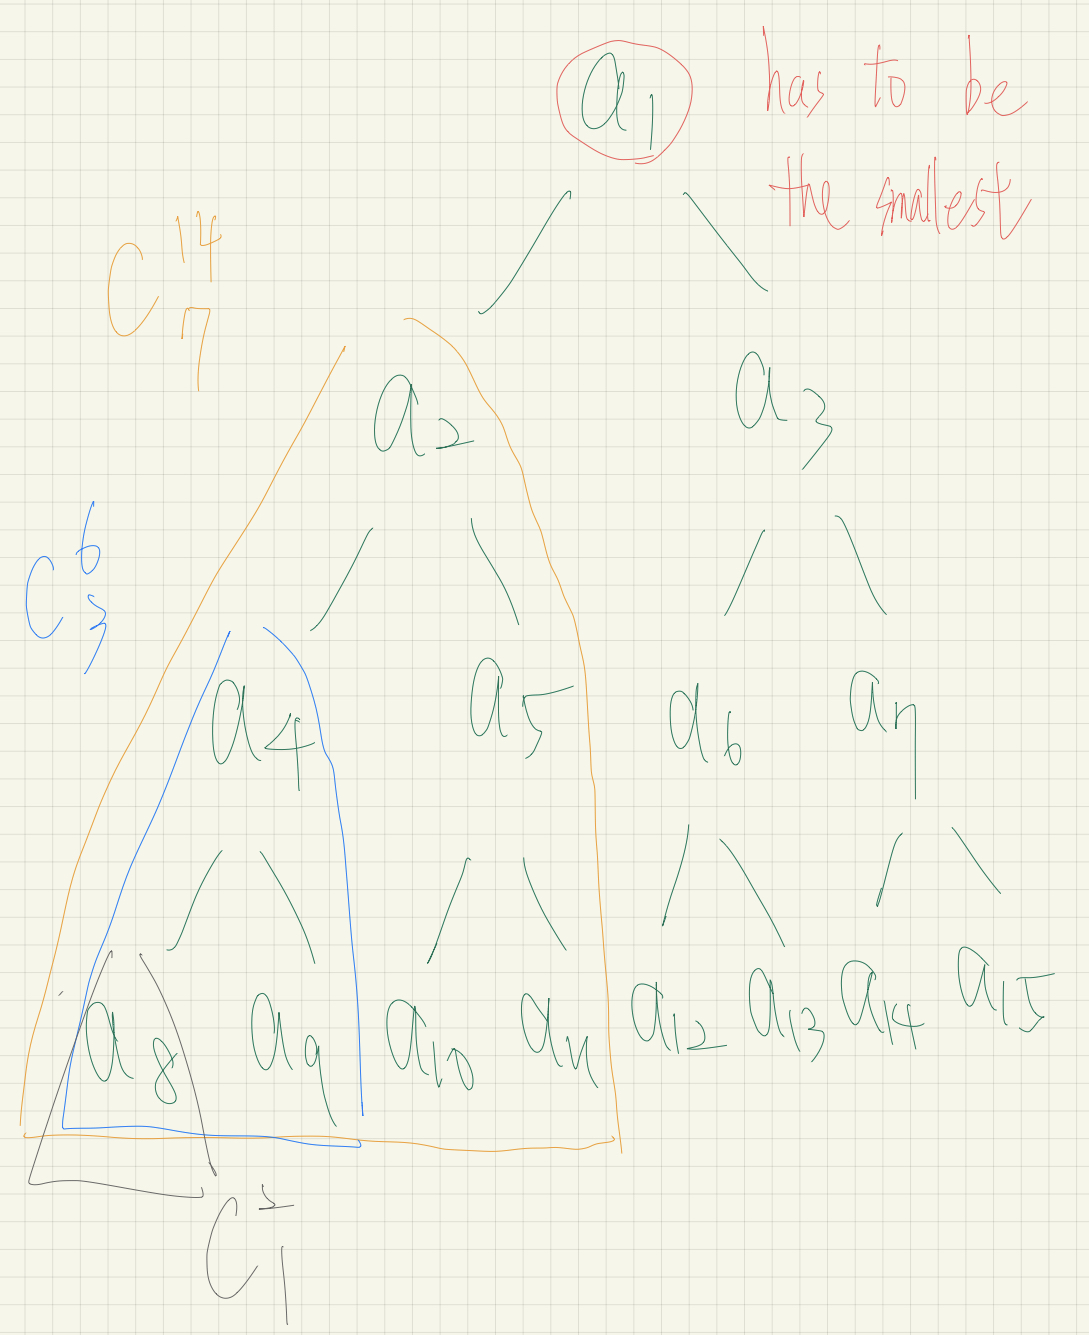 a₁ has to be
the smallest
C¹⁴₇
a₂ a₃
C⁶₃
a₄ a₅ a₆ a₇
a₈ a₉ a₁₀ a₁₁ a₁₂ a₁₃ a₁₄ a₁₅
C²₁